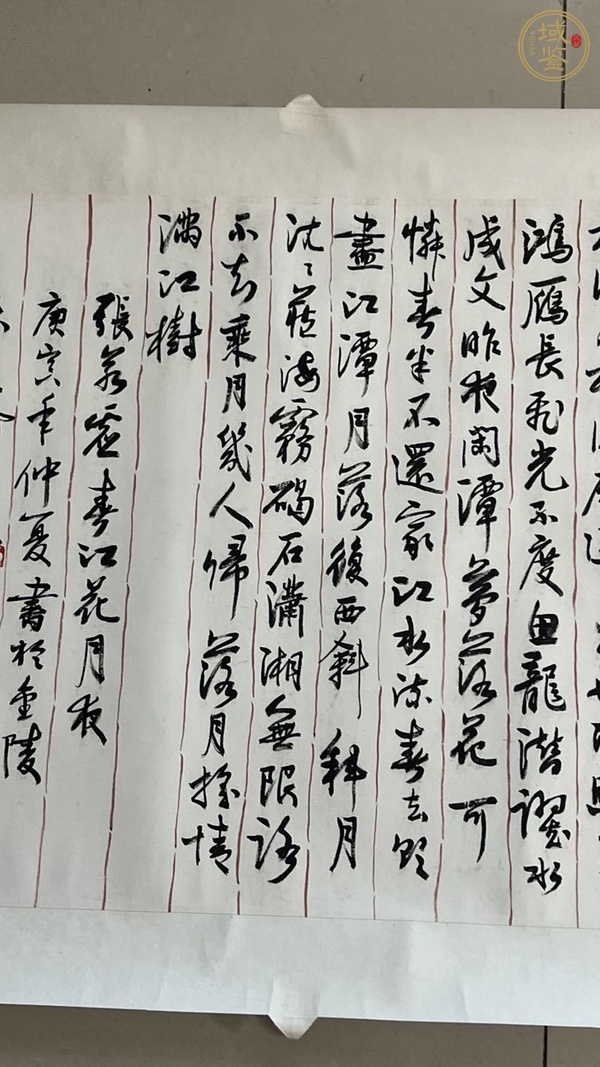 鴻鴈長飛光不度魚龍潛躍水
成文昨夜閑潭夢落花可
憐春半不還家江水流春去欲
盡江潭月落復西斜斜月
沈〻藏海霧碣石瀟湘無限路
不知乘月幾人歸落月搖情
滿江樹
張若虛春江花月夜
庚寅年仲夏書於金陵
域鉴